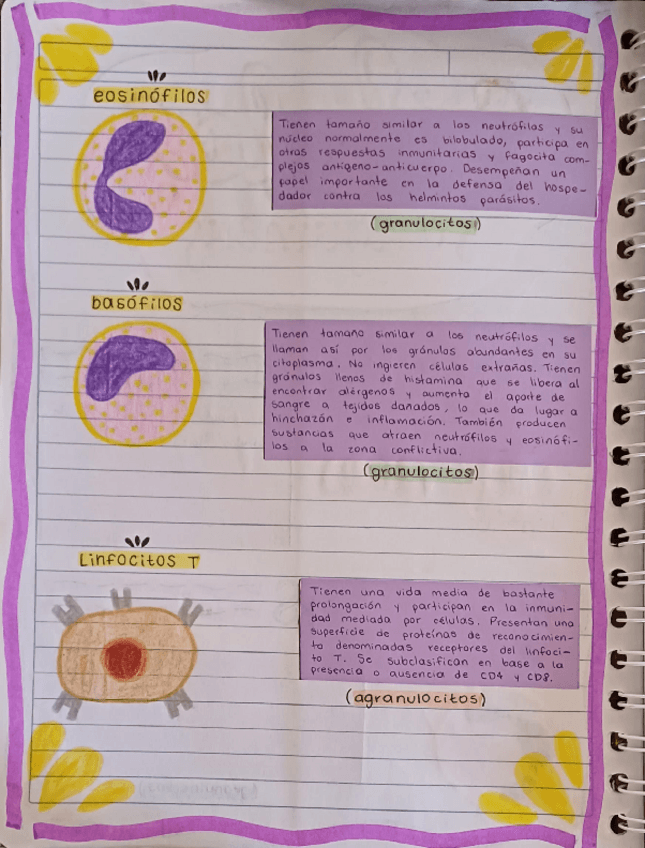 eosinófilos
Tienen tamaño similar a los neutrófilas y su
núcleo normalmente es bilobulado, participa en
otras respuestas inmunitarias y fagocita com-
plejos antígeno-anticuerpo. Desempeñan un
papel importante en la defensa del hospe-
dador contra los helmintos parásitos.
(granulocitos)
basófilos
Tienen tamaño similar a los neutrófilos y se
llaman así por los gránulos abundantes en su
citoplasma. No ingieren células extrañas. Tienen
gránulos llenos de histamina que se libera al
encontrar alérgenos y aumenta el aporte de
sangre a tejidos dañados, lo que da lugar a
hinchazón e inflamación. También producen
sustancias que atraen neutrófilos y eosinófi-
los a la zona conflictiva.
(granulocitos)
Linfocitos T
Tienen una vida media de bastante
prolongación y participan en la inmuni-
dad mediada por células. Presentan una
superficie de proteínas de reconocimien-
to denominadas receptores del linfoci-
to T. Se subclasifican en base a la
presencia o ausencia de CD4 y CD8.
(agranulocitos)